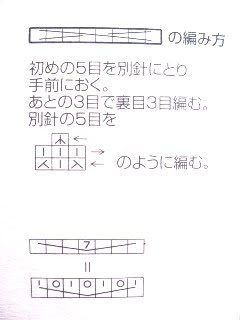 の編み方
初めの5目を別針にとり
手前におく。
あとの3目で裏目3目編む。
別針の5目を
のように編む。
7
=
1 0 1 0 1 0 1